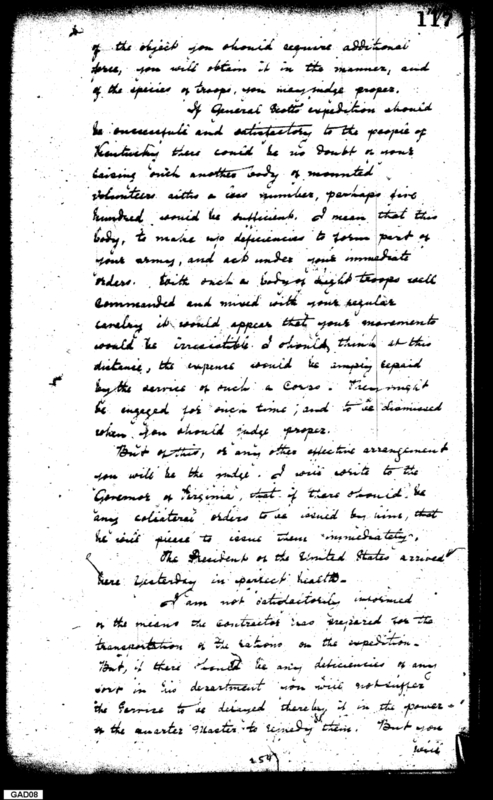 117
of the object you should require additional
force, you will obtain it in the manner, and
of the species of troops, you may judge proper.
If General Scotts expedition should
be successfull and satisfactory to the people of
Kentucky there could be no doubt of your
raising such another body of mounted
volunteers altho a less number, perhaps five
hundred would be sufficient. I mean that this
body, to make up deficiencies to form part of
your army, and act under your immediate
orders. With such a body of light troops well
commanded and mixed with your regular
cavalry it would appear that your movements
would be irresistible I should, think at this
distance, the expense would be amply repaid
by the service of such a Corps. They might
be engaged for such time, and to be dismissed
when you should judge proper.
But of this, or any other effective arrangement
you will be the judge. I will write to the
Governor of Virginia, that if there should be
any colateral orders to be issued by him, that
he will please to issue them immediately.
The President of the United States arrived
here yesterday in perfect health.
I am not satisfactorily informed
of the means the contractor has prepared for the
transportation of the rations on the expedition.
But, if there should be any deficiencies of any
sort in his department you will not suffer
the service to be delayed thereby if in the power
of the quarter Master to remedy them. But you
will
254
GAD08